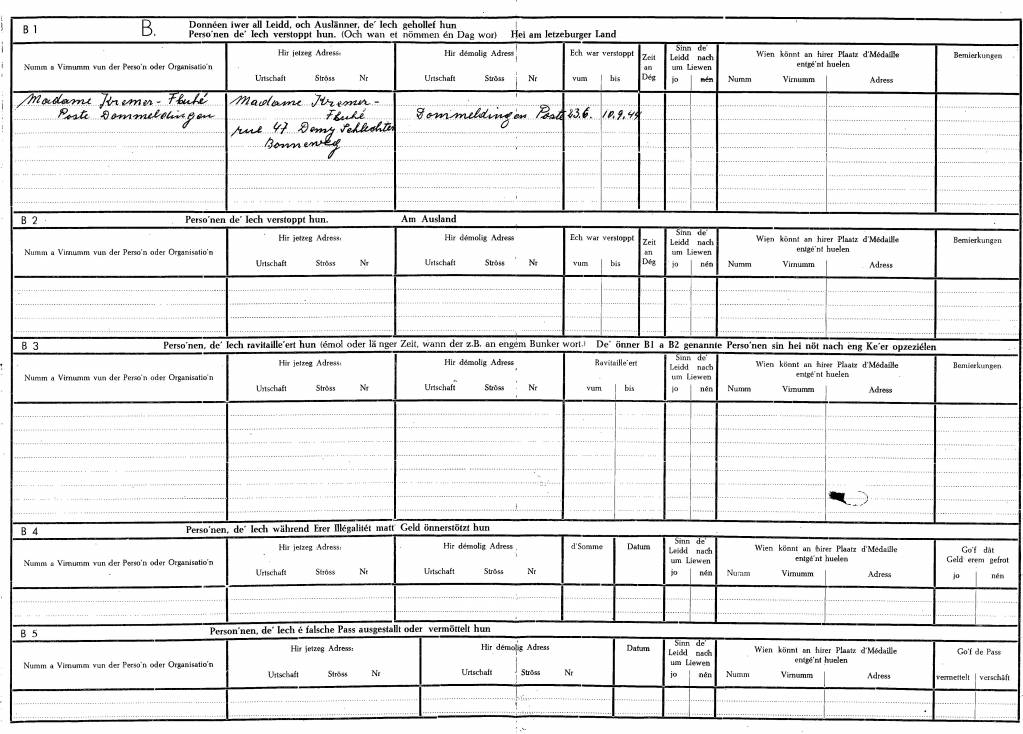 B 1
B.
Donnéen iwer all Leidd, och Auslänner, de' Iech gehollef hun
Perso'nen de' Iech verstoppt hun. (Och wan et nömmen én Dag wor) Hei am letzeburger Land
Numm a Virnumm vun der Perso'n oder Organisatio'n
Hir jetzeg Adress:
Urtschaft Ströss Nr
Hir démolig Adress
Urtschaft Ströss Nr
Ech war verstoppt
vum bis
Zeit
an
Dég
Sinn de'
Leidd nach
um Liewen
jo nén
Wien könnt an hirer Plaatz d'Médaille
entgé'nt huelen
Numm Virnumm Adress
Bemierkungen
Madame Kremer - Fluhé
Poste Dommeldingen
Madame Kremer -
Fluhé
rue 47 Demy Schlechter
Bonneweg
Dommeldingen Poste
23.6. 10.9.44
B 2
Perso'nen de' Iech verstoppt hun. Am Ausland
Numm a Virnumm vun der Perso'n oder Organisatio'n
Hir jetzeg Adress:
Urtschaft Ströss Nr
Hir démolig Adress
Urtschaft Ströss Nr
Ech war verstoppt
vum bis
Zeit
an
Dég
Sinn de'
Leidd nach
um Liewen
jo nén
Wien könnt an hirer Plaatz d'Médaille
entgé'nt huelen
Numm Virnumm Adress
Bemierkungen
B 3
Perso'nen, de' Iech ravitaille'ert hun (émol oder lä nger Zeit, wann der z.B. an engém Bunker wort.) De' önner B1 a B2 genannte Perso'nen sin hei nöt nach eng Ke'er opzeziélen
Numm a Virnumm vun der Perso'n oder Organisatio'n
Hir jetzeg Adress:
Urtschaft Ströss Nr
Hir démolig Adress
Urtschaft Ströss Nr
Ravitaille'ert
vum bis
Sinn de'
Leidd nach
um Liewen
jo nén
Wien könnt an hirer Plaatz d'Médaille
entgé'nt huelen
Numm Virnumm Adress
Bemierkungen
B 4
Perso'nen, de' Iech während Erer Illégalitét matt Geld önnerstötzt hun
Numm a Virnumm vun der Perso'n oder Organisatio'n
Hir jetzeg Adress:
Urtschaft Ströss Nr
Hir démolig Adress
Urtschaft Ströss Nr
d'Somme
Datum
Sinn de'
Leidd nach
um Liewen
jo nén
Wien könnt an hirer Plaatz d'Médaille
entgé'nt huelen
Numm Virnumm Adress
Go'f dât
Geld erem gefrot
jo nén
B 5
Person'nen, de' Iech é falsche Pass ausgestallt oder vermöttelt hun
Numm a Virnumm vun der Perso'n oder Organisatio'n
Hir jetzeg Adress:
Urtschaft Ströss Nr
Hir démolig Adress
Urtschaft Ströss Nr
Datum
Sinn de'
Leidd nach
um Liewen
jo nén
Wien könnt an hirer Plaatz d'Médaille
entgé'nt huelen
Numm Virnumm Adress
Go'f de Pass
vermettelt verschäft